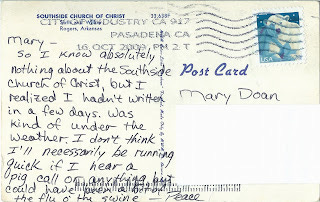 SOUTHSIDE CHURCH OF CHRIST
Rogers, Arkansas
CITY OF INDUSTRY CA 917
PASADENA CA
16 OCT 2009 PM 2 T
USA
Post Card
Mary -
So I know absolutely
nothing about the Southside
Church of Christ, but I
realized I hadn't written
in a few days. Was
kind of under the
weather. I don't think
I'll necessarily be running
quick if I hear a
pig call or anything but
could have been a
the flu o' the swine - Peace
Mary Doan